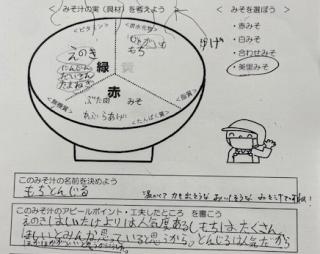 ＜ みそ汁の実（具材）を考えよう ＞
＜ みそを選ぼう ＞
・赤みそ
・白みそ
・合わせみそ
・美里みそ
＜ビタミン＞
えのき
にんじん
だいこん
たまねぎ
緑
＜炭水化物＞
じゃがいも
もち
黄
＜脂質＞
赤
＜無機質＞
ぶた肉
みそ
あぶらあげ
＜たんぱく質＞
このみそ汁の名前を決めよう
もちとんじる
このみそ汁のアピールポイント・工夫したところ を書こう
えのきしほしいたけよりは人気度あるしもちはたくさん
ほしいとみんな思っていると思うから。とんじるは人気だから